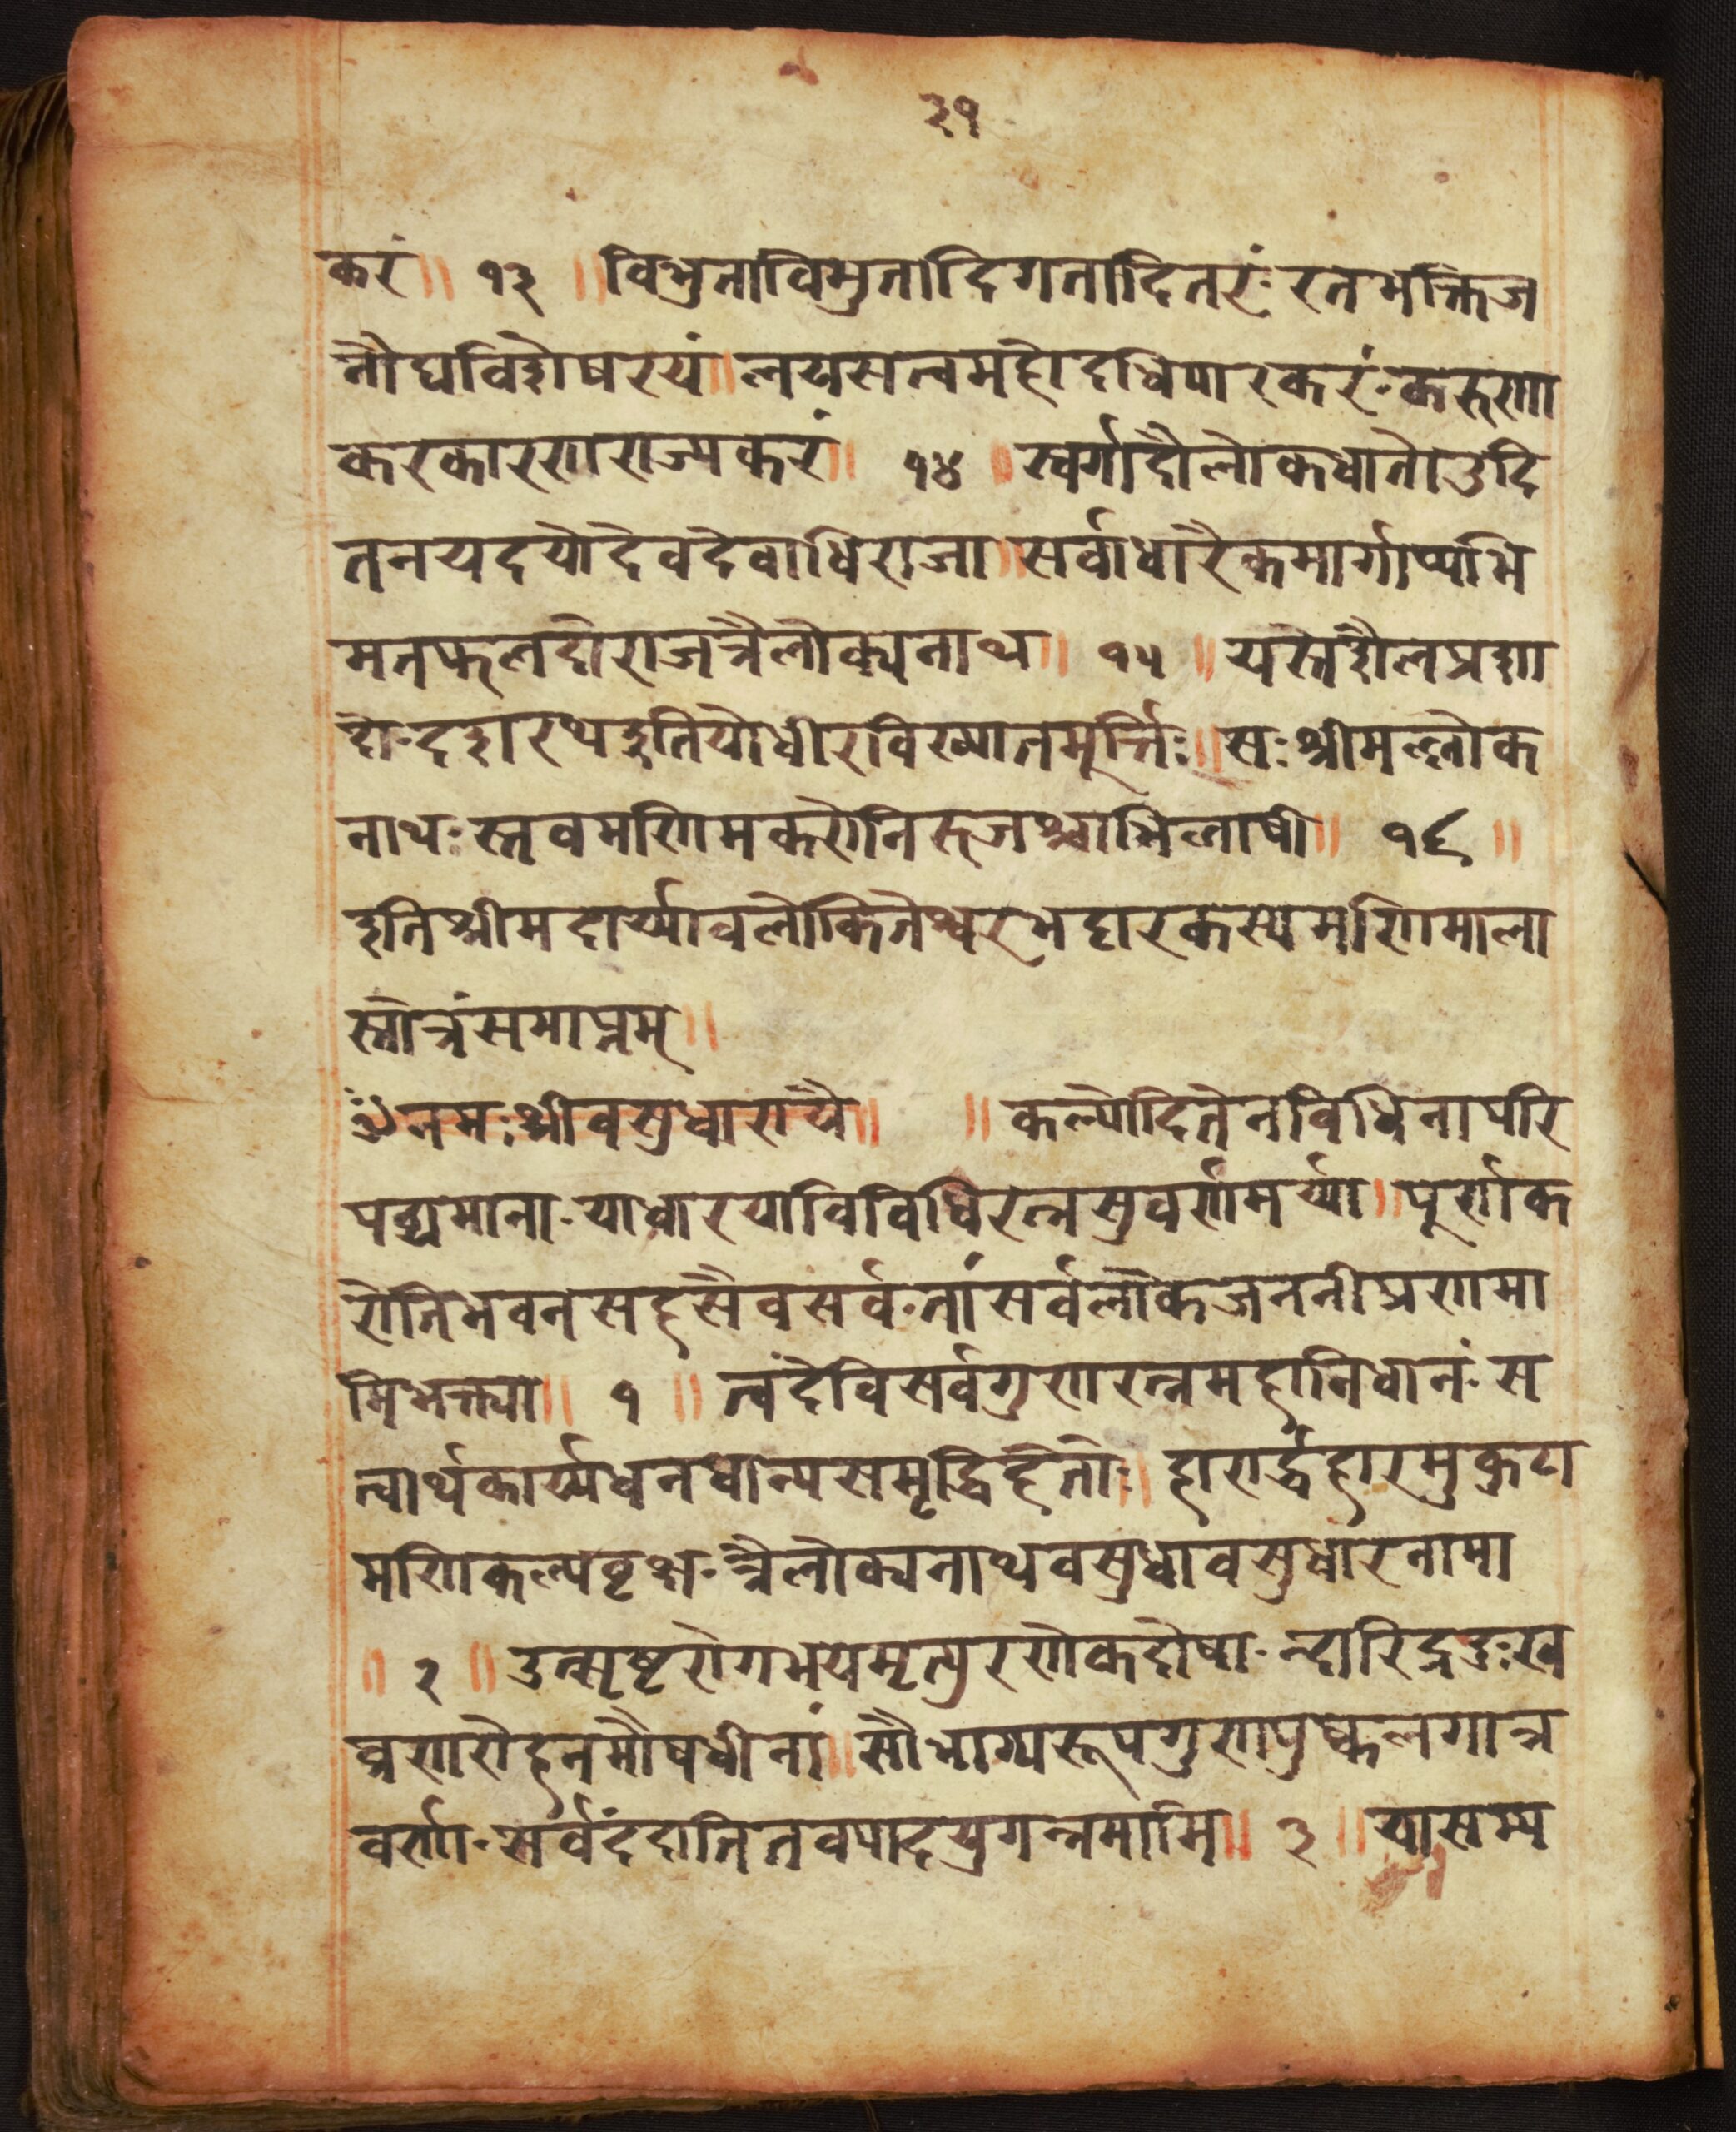 २१
करं॥ १३ ॥विभुनाविमुतादिगतादितरंॱरतभक्तिज
नौघविशेषरयं॥लयसत्वमहोदधिपारकरंॱकरुणा
करकारणराज्यकरं॥ १४ ॥स्वर्गादौलोकधातोउदि
तनयदयोदेवदेवाधिराजा॥सर्वाधारैकमार्गाप्यभि
मतफलदोराजत्रैलोक्यनाथ॥ १५ ॥यस्तेशैलप्रज्ञा
दोॱदशरथइतियोधीरविख्यातमूर्त्तिः॥सःश्रीमल्लोक
नाथःस्तवमणिमकरोनिरुजश्चाभिलाषी॥ १६ ॥
इतिश्रीमदार्य्यावलोकितेश्वरभट्टारकस्येमणिमाला
स्तोत्रंसमाप्तम्॥
ॐनमःश्रीवसुधारायै॥ ॥कल्पोदितेनविधिनापरि
पठ्यमानाॱयाधारयाविविधिरत्नसुवर्णमर्या॥पूर्णाक
रोतिभवनसहसैवसर्वॱतांसर्वलोकजननीप्रणमा
मिभक्त्या॥ १ ॥त्वंदेविसर्वगुणरत्नमहानिधानंॱस
त्वार्थकार्य्यधनधान्यसमृद्धिहेतोः॥हारार्द्धहारमुकुटा
मणिकल्पवृक्षॱत्रैलोक्यनाथवसुधावसुधारनामा
॥ २ ॥उत्सृष्टरोगभयमृत्युरणोकदोषाॱन्दारिद्रदुःख
व्रणरोहनमौषधीनां॥सौभाग्यरूपगुणपुष्कलगात्र
वर्णाॱसर्वंददातितवपादयुगन्नमामि॥ ३ ॥यासम्य